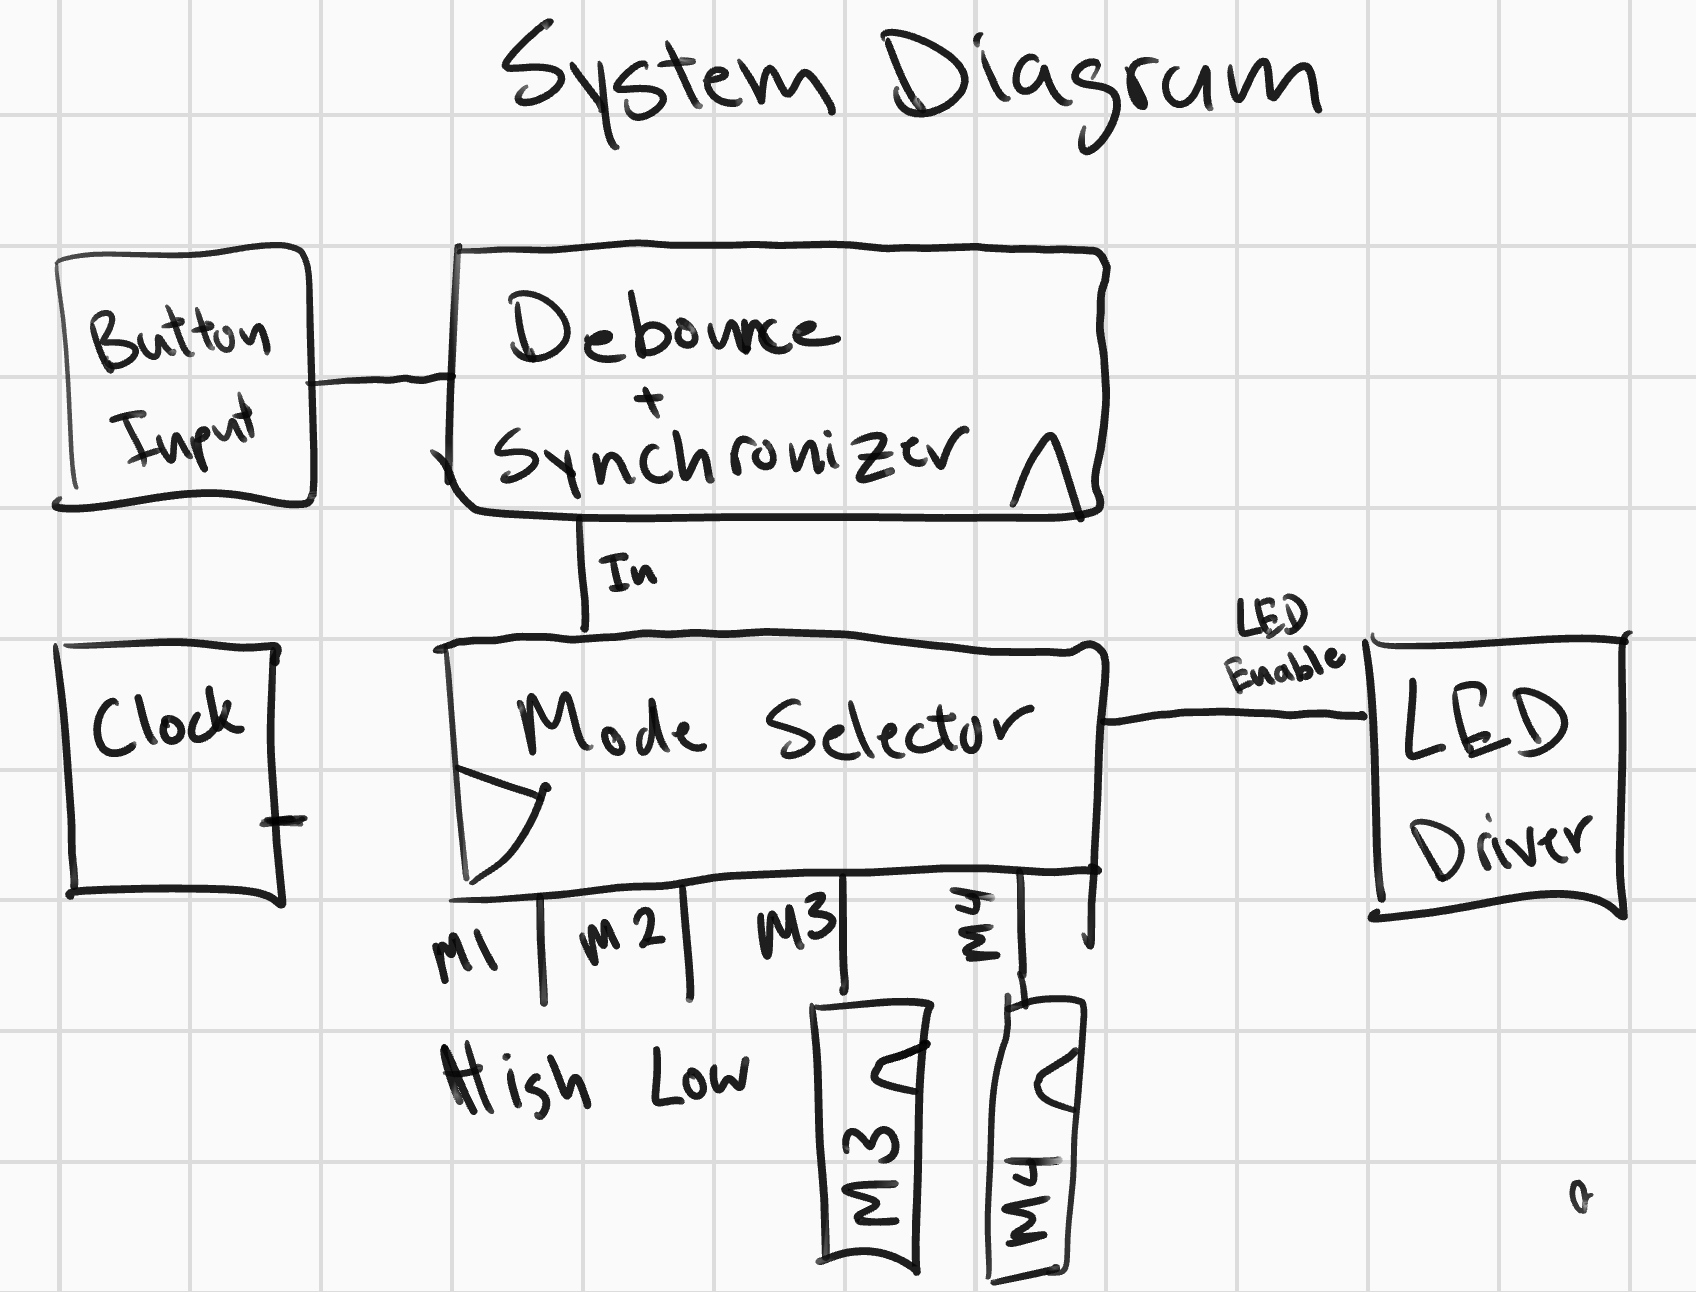 System Diagram
Button
Input
Debounce
+
Synchronizer
In
LED
Enable
Clock
Mode Selector
LED
Driver
M1
M2
M3
M4
High Low
M3
M4